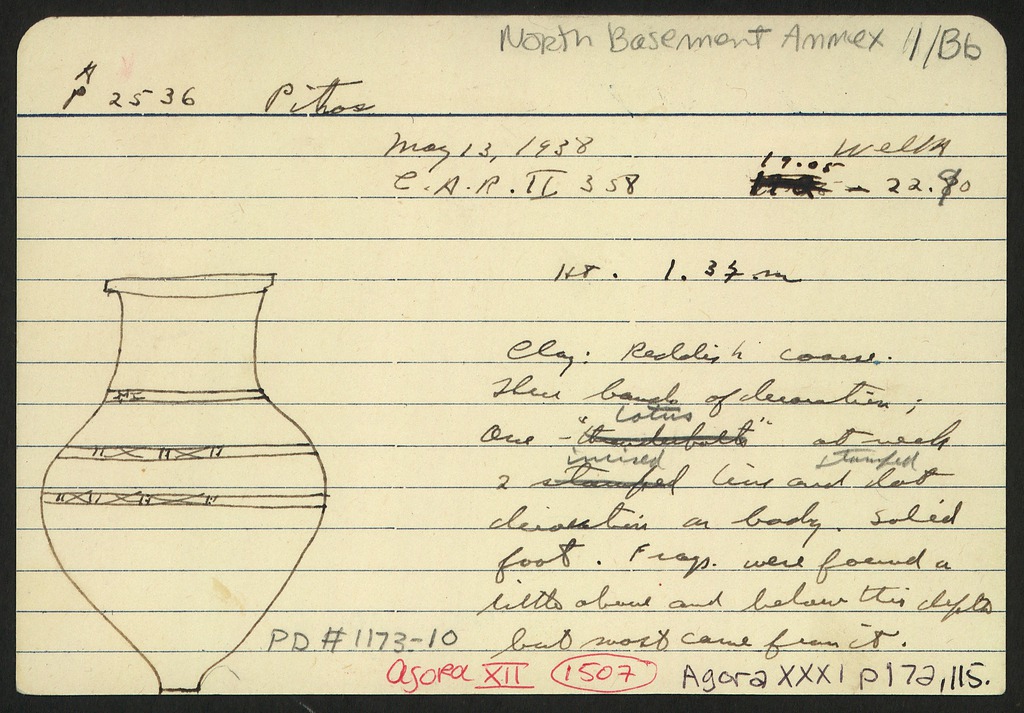 North Basement Annex 11/B6
A
P 2536 Pithos
May 13, 1938 Well A
C.A.R. II 358 19.05 - 22.90
Ht. 1.34 m
Clay: Reddish coarse.
Three bands of decoration;
lotus
One - "thunderbolts" at neck
incised stamped
2 stamped line and dot
decoration on body. Solid
foot. Frags. were found a
little above and below this depth
but most came from it.
PD # 1173-10
Agora XII 1507 Agora XXXI p172,115.